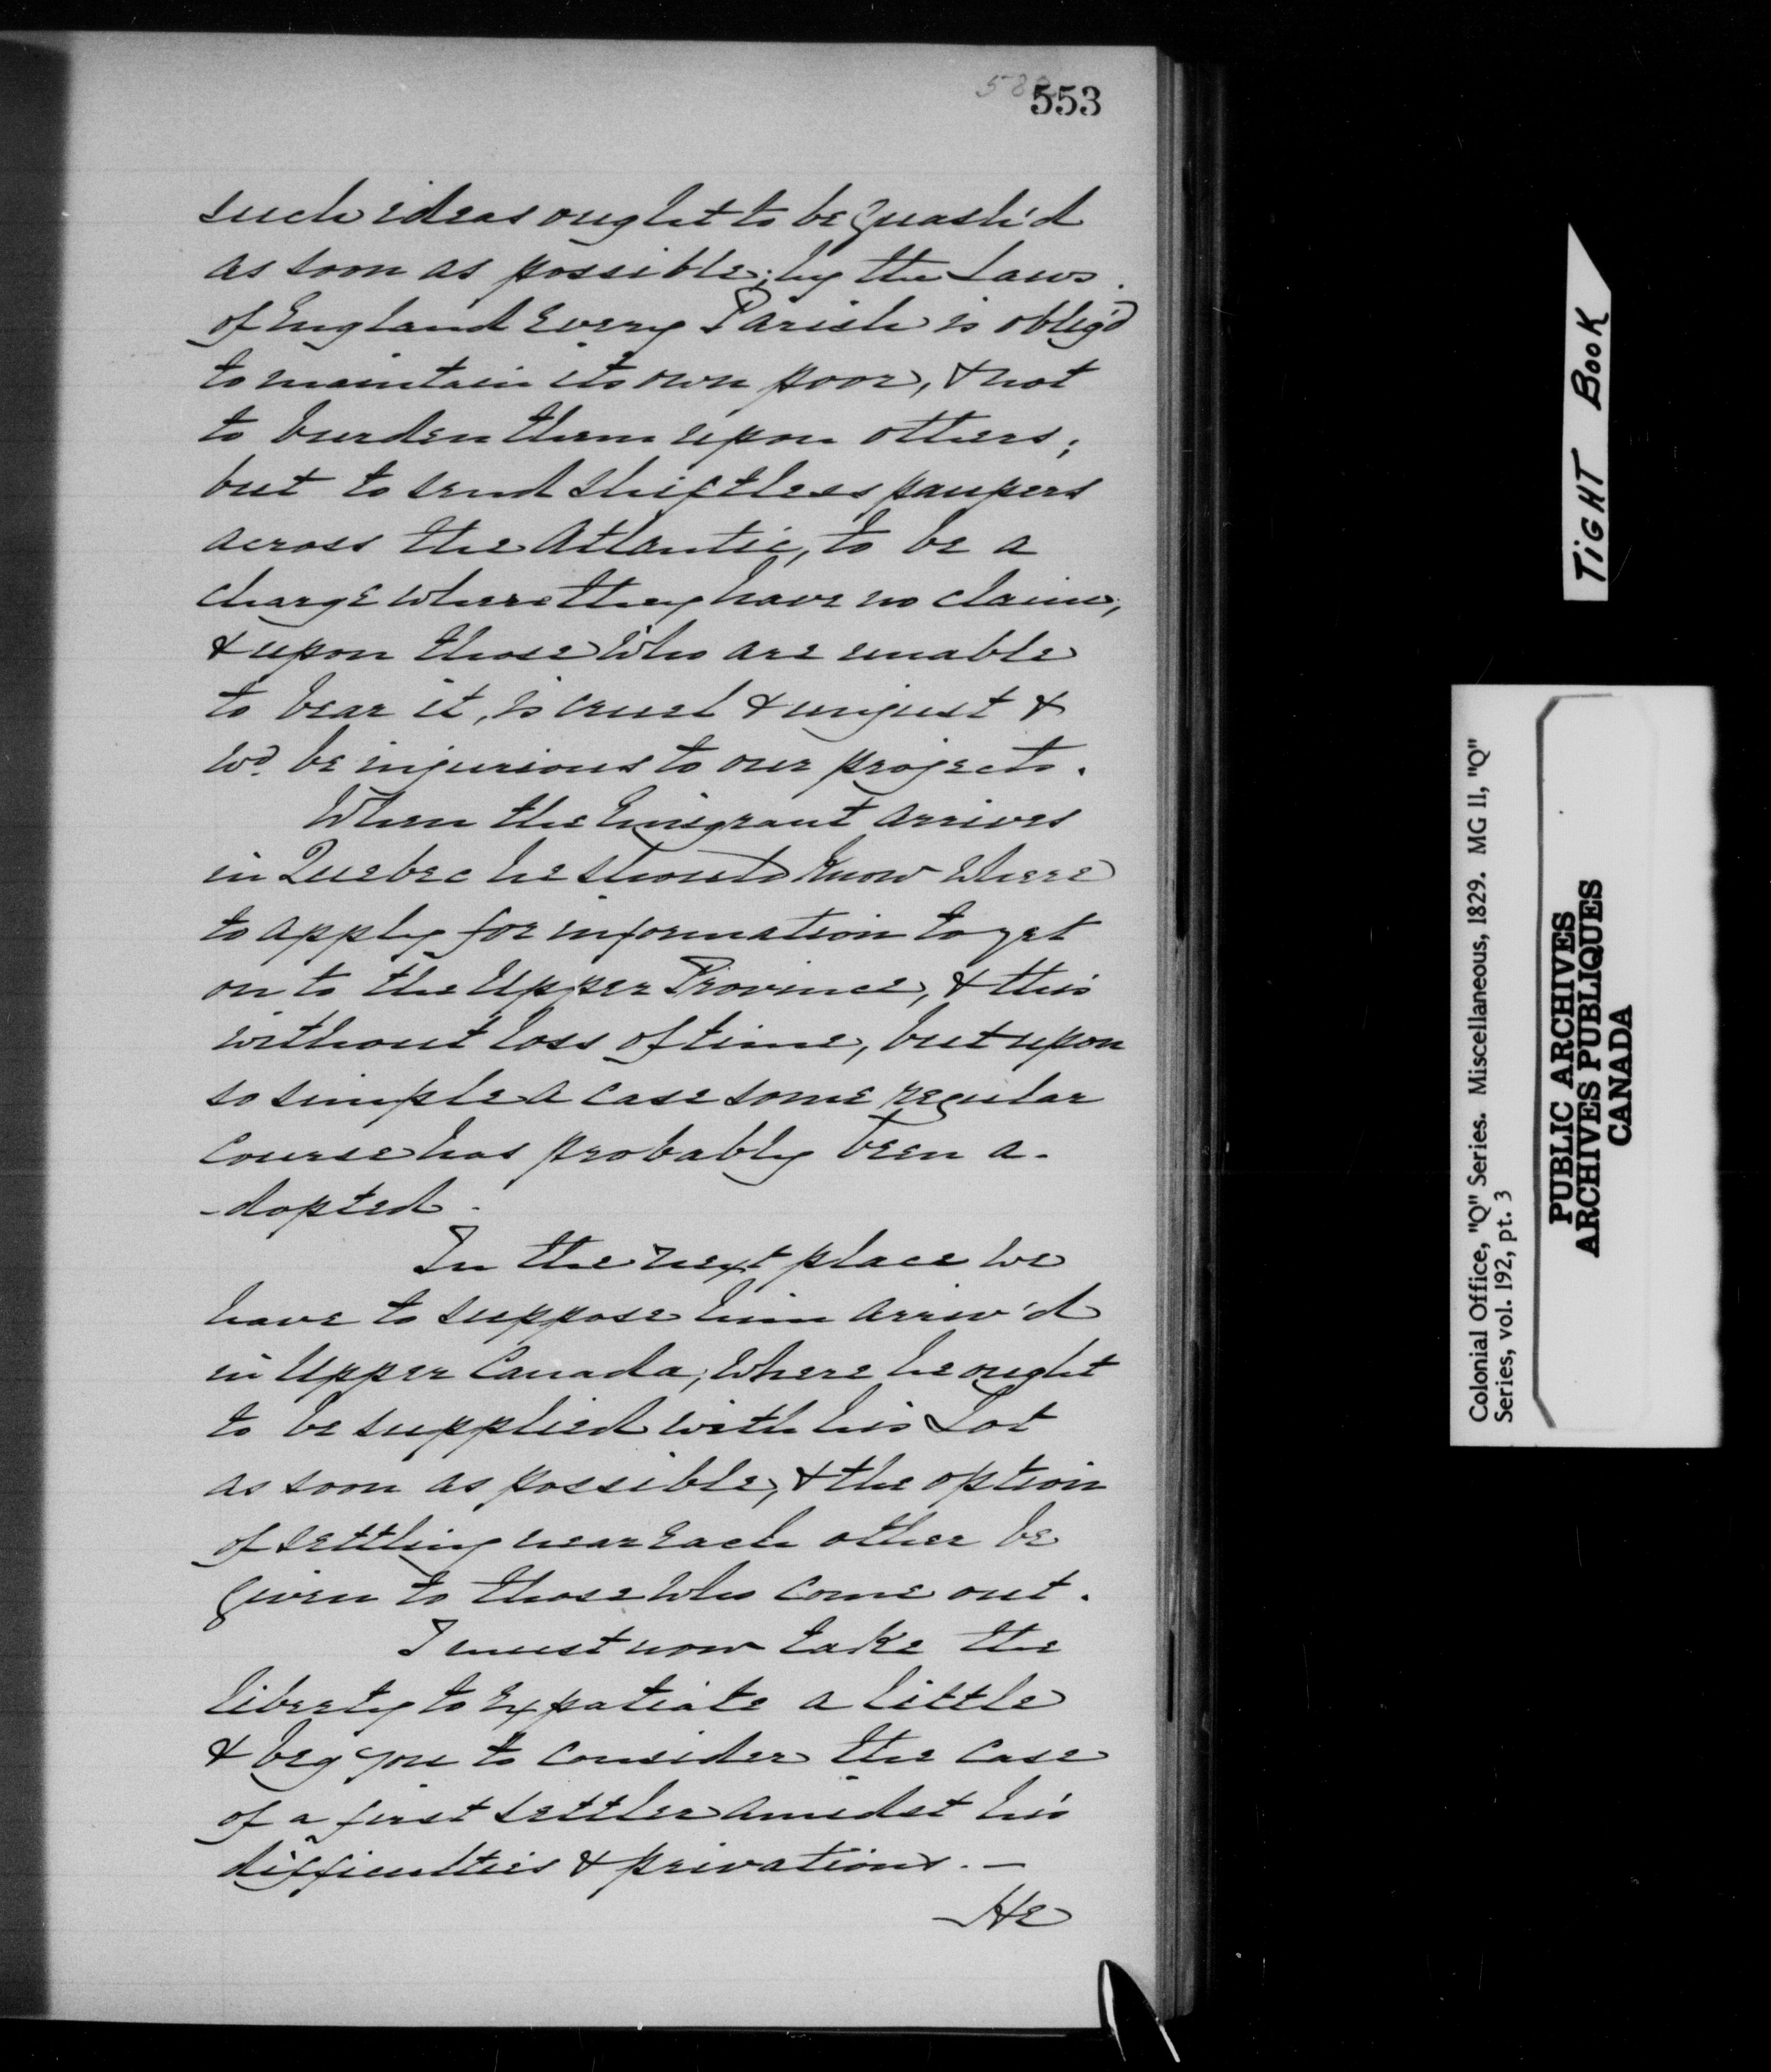 553
such ideas ought to be quash'd
as soon as possible; by the Laws
of England Every Parish is oblig'd
to maintain its own poor, & not
to burden them upon others;
but to send shiftless paupers
across the Atlantic, to be a
charge where they have no claim,
& upon those who are unable
to bear it, is cruel & unjust &
wd. be injurious to our projects.
When the Emigrant arrives
in Quebec he should know where
to apply for information to get
on to the Upper Province, & this
without loss of time, but upon
so simple a case some regular
course has probably been a-
-dopted.
In the next place we
have to suppose him arriv'd
in Upper Canada, where he ought
to be supplied with his Lot
as soon as possible, & the option
of settling near Each other be
given to those who come out.
I must now take the
liberty to Expatiate a little
& beg you to consider the case
of a first settler amidst his
difficulties & privations. —
He
TIGHT BOOK
Colonial Office, "Q" Series. Miscellaneous, 1829. MG 11, "Q"
Series, vol. 192, pt. 3
PUBLIC ARCHIVES
ARCHIVES PUBLIQUES
CANADA